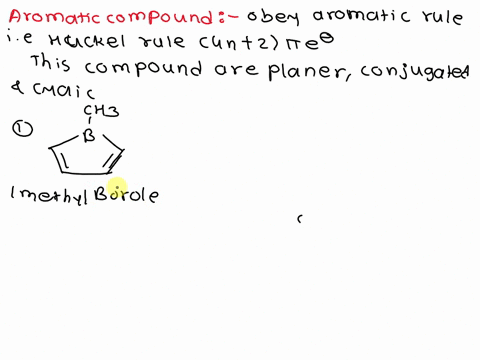 Aromatic compound:- obey aromatic rule
i.e Huckel rule (4n+2) πe⊖
This compound are planer, conjugated
& cyclic
CH3
① B
1methyl Borole